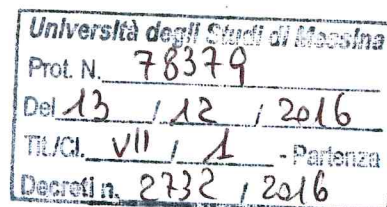 Università degli Studi di Messina
Prot. N. 78379
Del 13 / 12 / 2016
Tit./Cl. VII / 1 - Partenza
Decreti n. 2732 / 2016